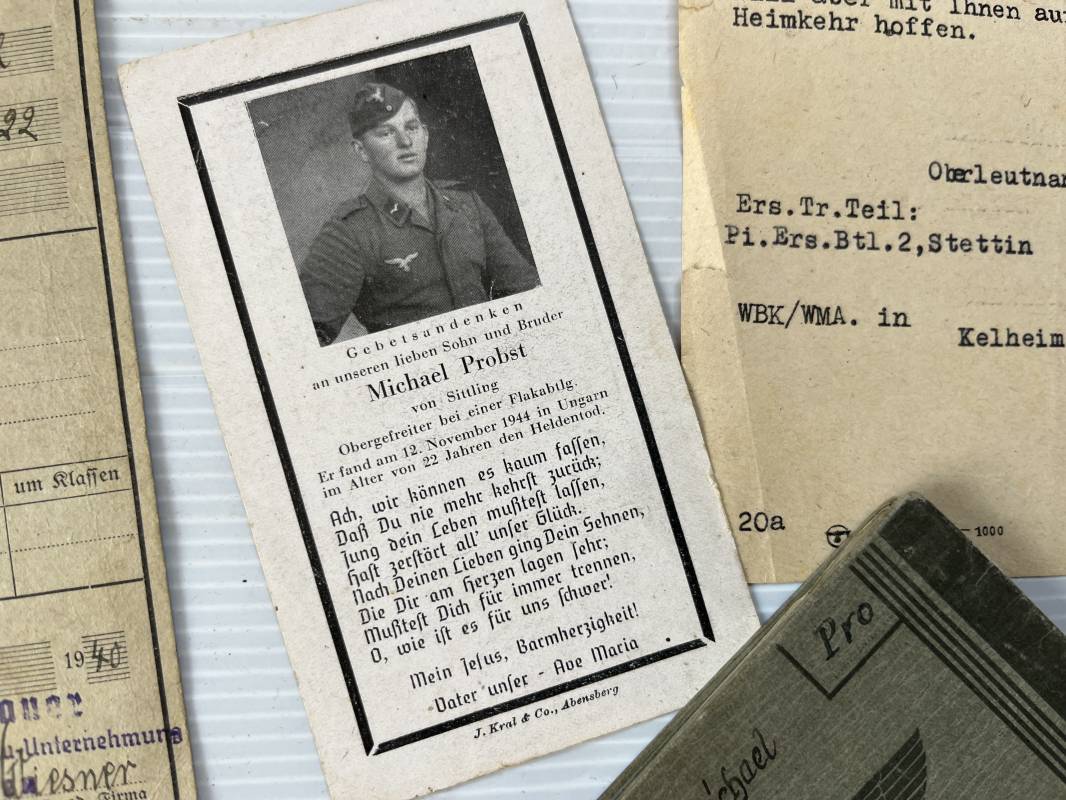 22
um Klassen
1940
u. Unternehmung
Wiesner
Firma
Gebetsandenken
an unseren lieben Sohn und Bruder
Michael Probst
von Sittling
Obergefreiter bei einer Flakabtlg.
Er fand am 12. November 1944 in Ungarn
im Alter von 22 Jahren den Heldentod.
Ach, wir können es kaum fassen,
Daß Du nie mehr kehrst zurück;
Jung dein Leben mußtest lassen,
Hast zerstört all' unser Glück.
Nach Deinen Lieben ging Dein Sehnen,
Die Dir am Herzen lagen sehr;
Mußtest Dich für immer trennen,
O, wie ist es für uns schwer!
Mein Jesus, Barmherzigkeit!
Vater unser - Ave Maria
J. Kral & Co., Abensberg
mit Ihnen auf
Heimkehr hoffen.
Oberleutnan
Ers.Tr.Teil:
Pi.Ers.Btl.2,Stettin
WBK/WMA. in
Kelheim
20a
1000
Pro
ichael